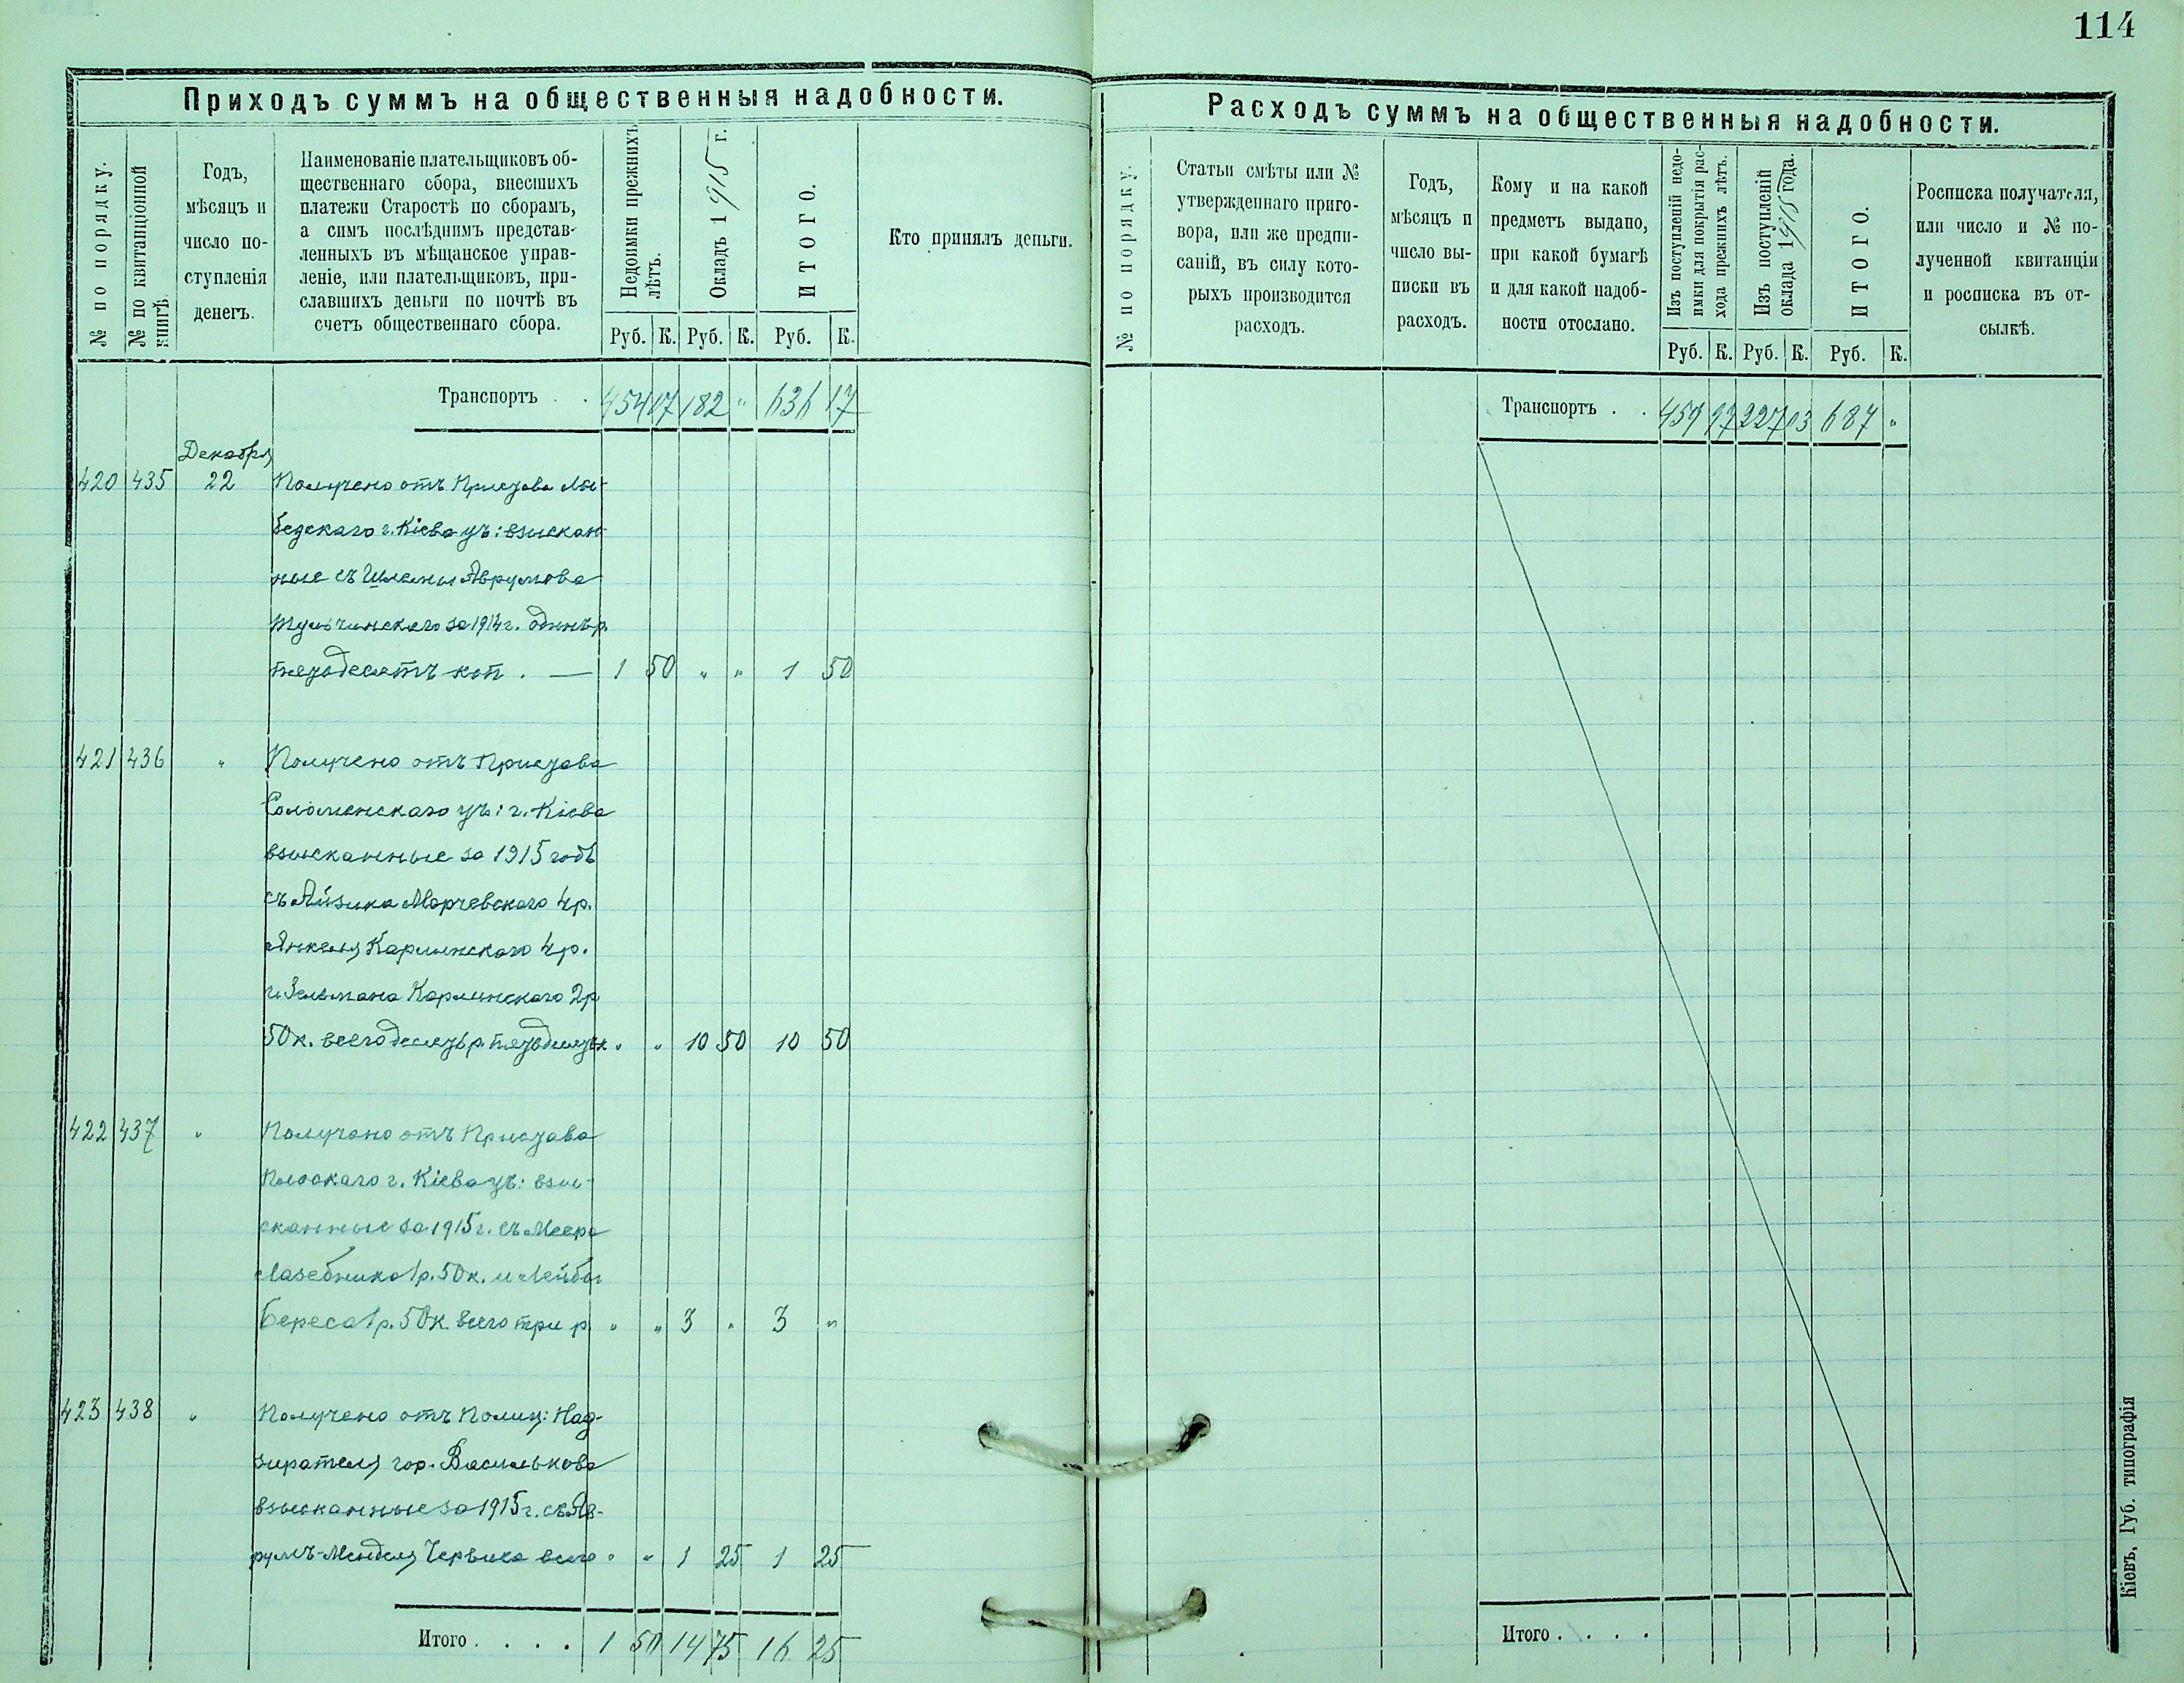 114
Приходъ суммъ на общественныя надобности.
№ по порядку.
№ по квитанціонной книгѣ.
Годъ,
мѣсяцъ и
число по-
ступленія
денегъ.
Наименованіе плательщиковъ об-
щественнаго сбора, внесшихъ
платежи Старостѣ по сборамъ,
а симъ послѣднимъ представ-
ленныхъ въ мѣщанское управ-
леніе, или плательщиковъ, при-
славшихъ деньги по почтѣ въ
счетъ общественнаго сбора.
Недоимки прежнихъ
лѣтъ.
Окладъ 1915 г.
ИТОГО.
Кто принялъ деньги.
Руб. К. Руб. К. Руб. К.
Транспортъ . . 454 17 182 " 636 17
Декабря
420 435 22 Получено отъ Пристава Лы-
бедскаго г. Кіева уч: взыскан-
ные съ Шлемы Аврумова
Тульчинскаго за 1914 г. одинъ р.
пятьдесятъ коп. — 1 50 " " 1 50
421 436 " Получено отъ Пристава
Соломенскаго уч: г. Кіева
взысканные за 1915 годъ
съ Айзика Марчевскаго 4 р.
Янкеля Карлинскаго 4 р.
и Зельмана Карлинскаго 2 р
50 к. всего десять р. пятьдесятъ к. " " 10 50 10 50
422 437 " Получено отъ Пристава
Плоскаго г. Кіева уч: взы-
сканные за 1915 г. съ Меера
Лазебника 1 р. 50 к. и Лейбы
Береса 1 р. 50 к. всего три р. " " 3 " 3 "
423 438 " Получено отъ Полиц: Над-
зирателя гор. Василькова
взысканные за 1915 г. съ Ав-
румъ-Менделя Червика всего " " 1 25 1 25
Итого . . . . 1 50 14 75 16 25
Расходъ суммъ на общественныя надобности.
№ по порядку.
Статьи смѣты или №
утвержденнаго приго-
вора, или же предпи-
саній, въ силу кото-
рыхъ производится
расходъ.
Годъ,
мѣсяцъ и
число вы-
писки въ
расходъ.
Кому и на какой
предметъ выдано,
при какой бумагѣ
и для какой надоб-
ности отослано.
Изъ поступленій недо-
имки для покрытія рас-
хода прежнихъ лѣтъ.
Изъ поступленій
оклада 1915 года.
ИТОГО.
Росписка получателя,
или число и № по-
лученной квитанціи
и росписка въ от-
сылкѣ.
Руб. К. Руб. К. Руб. К.
Транспортъ . . 459 97 227 03 687 "
Итого . . . .
Кіевъ, Губ. типографія